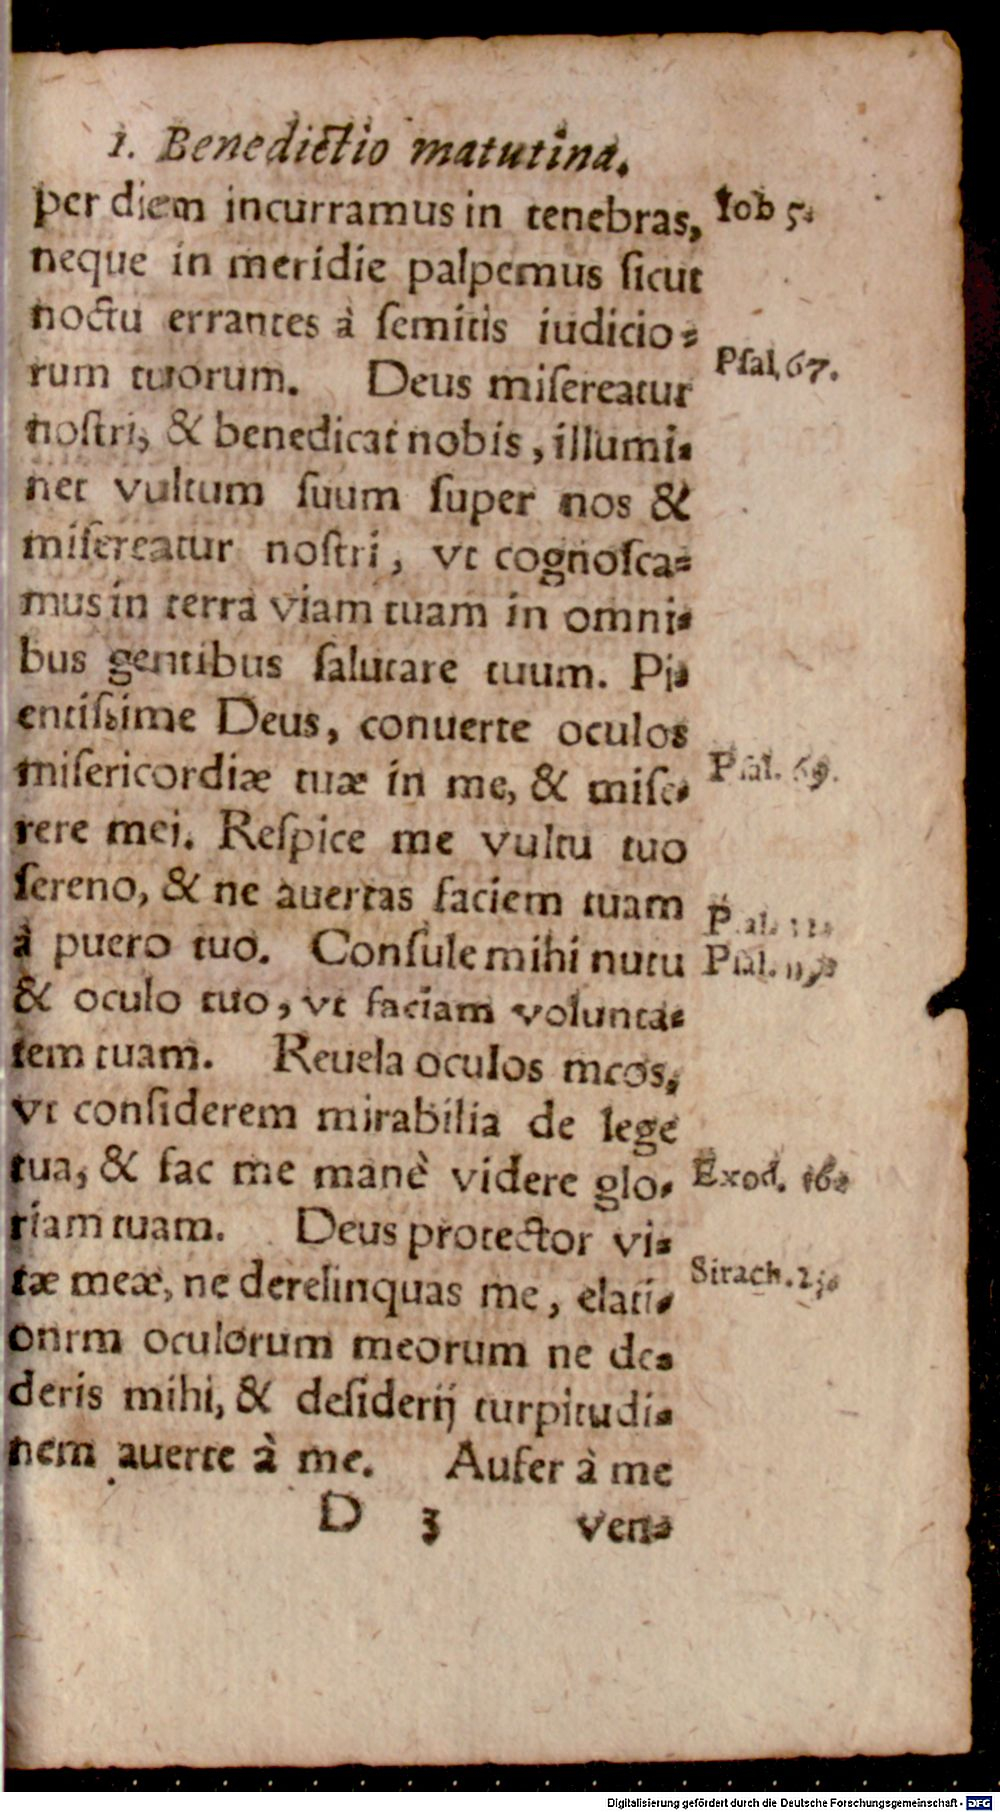 1. Benedictio matutina.
per diem incurramus in tenebras,
Iob 5.
neque in meridie palpemus ſicut
noctu errantes à ſemitis iudicio⸗
rum tuorum. Deus miſereatur
Pſal. 67.
noſtri, & benedicat nobis, illumi⸗
net vultum ſuum ſuper nos &
miſereatur noſtri, vt cognoſca⸗
mus in terra viam tuam in omni⸗
bus gentibus ſalutare tuum. Pi⸗
entiſsime Deus, conuerte oculos
miſericordiæ tuæ in me, & miſe⸗
Pſal. 69.
rere mei. Reſpice me vultu tuo
ſereno, & ne auertas faciem tuam
Pſal.
à puero tuo. Conſule mihi nutu
Pſal.
& oculo tuo, vt faciam volunta⸗
tem tuam. Reuela oculos meos,
vt conſiderem mirabilia de lege
tua, & fac me manè videre glo⸗
Exod. 16.
riam tuam. Deus protector vi⸗
tæ meæ, ne derelinquas me, elati⸗
Sirach. 23.
onrm oculorum meorum ne de⸗
deris mihi, & deſiderij turpitudi⸗
nem auerte à me. Aufer à me
D 3 ven⸗
Digitalisierung gefördert durch die Deutsche Forschungsgemeinschaft - DFG